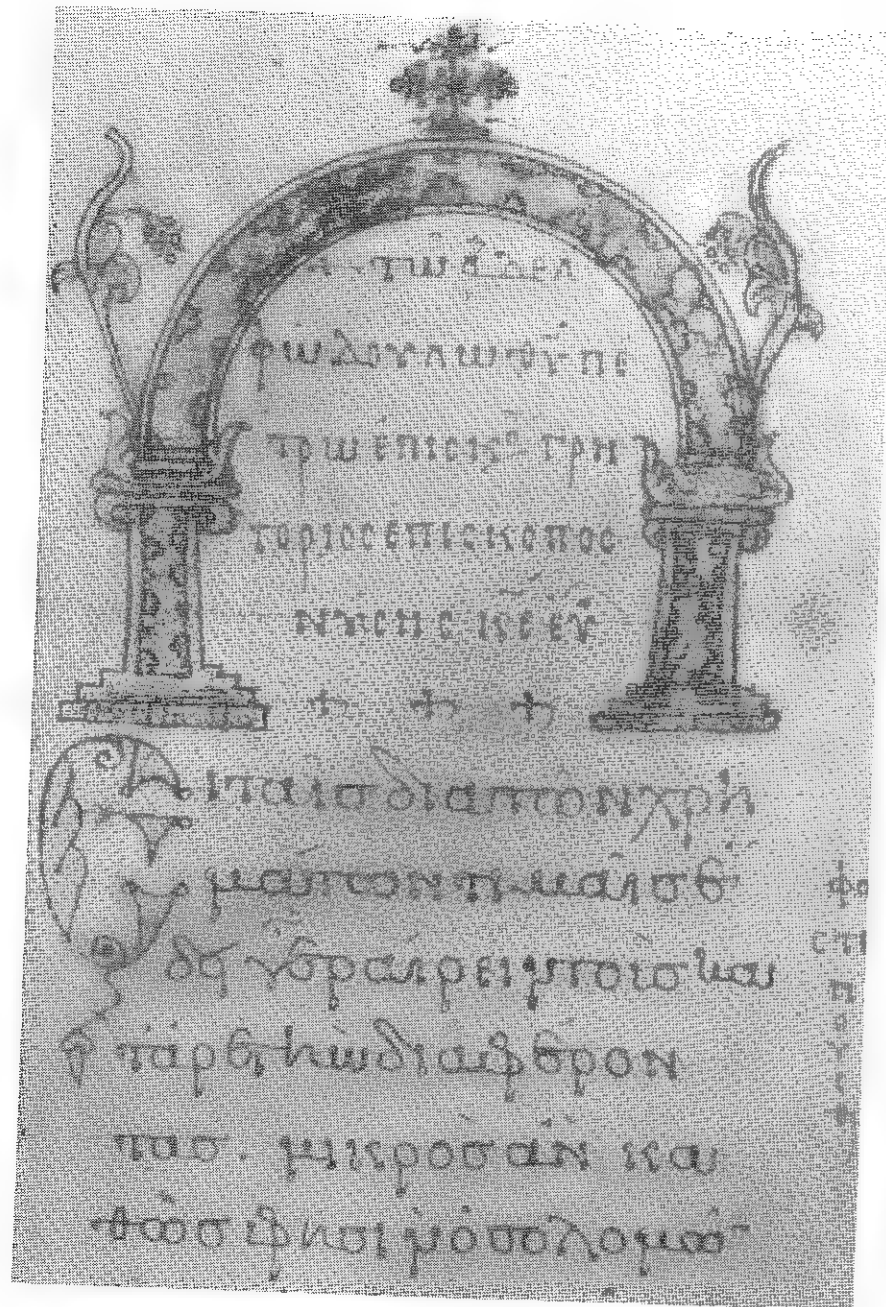 τῶ ἀδελ
φῶ δούλω θῦ πέ
τρω ἐπισκ° Γρη
γόριος ἐπίσκοπος
νύσης
Εἰ ταῖσ διὰ τῶν χρη
μάτων τιμαῖσ ἔ
δει γεραίρειν τοὺσ κα
τ' ἀρετὴν διαφέρον
τασ. μικρὸσ ἂν κα
θώσ φησιν ὁ σολομῶ